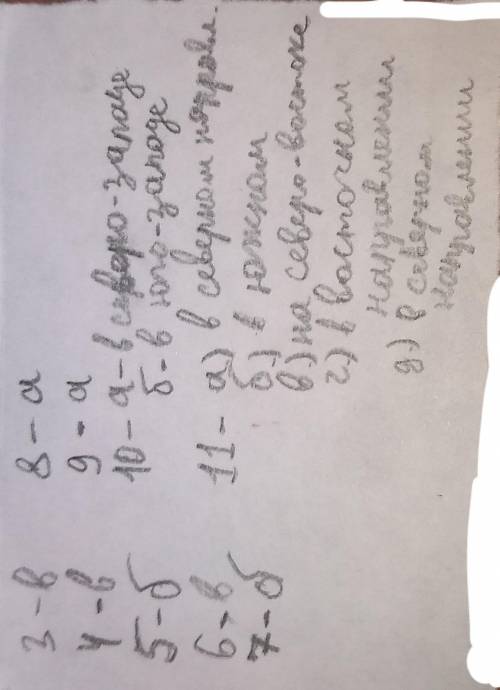 3 - в
4 - в
5 - б
6 - в
7 - б
8 - а
9 - а
10 - а - в северо-западе
б - в юго-западе
11 - а) в северном направл.
б) в южном
в) на северо-востоке
г) в восточном
направлении
д) в северном
направлении